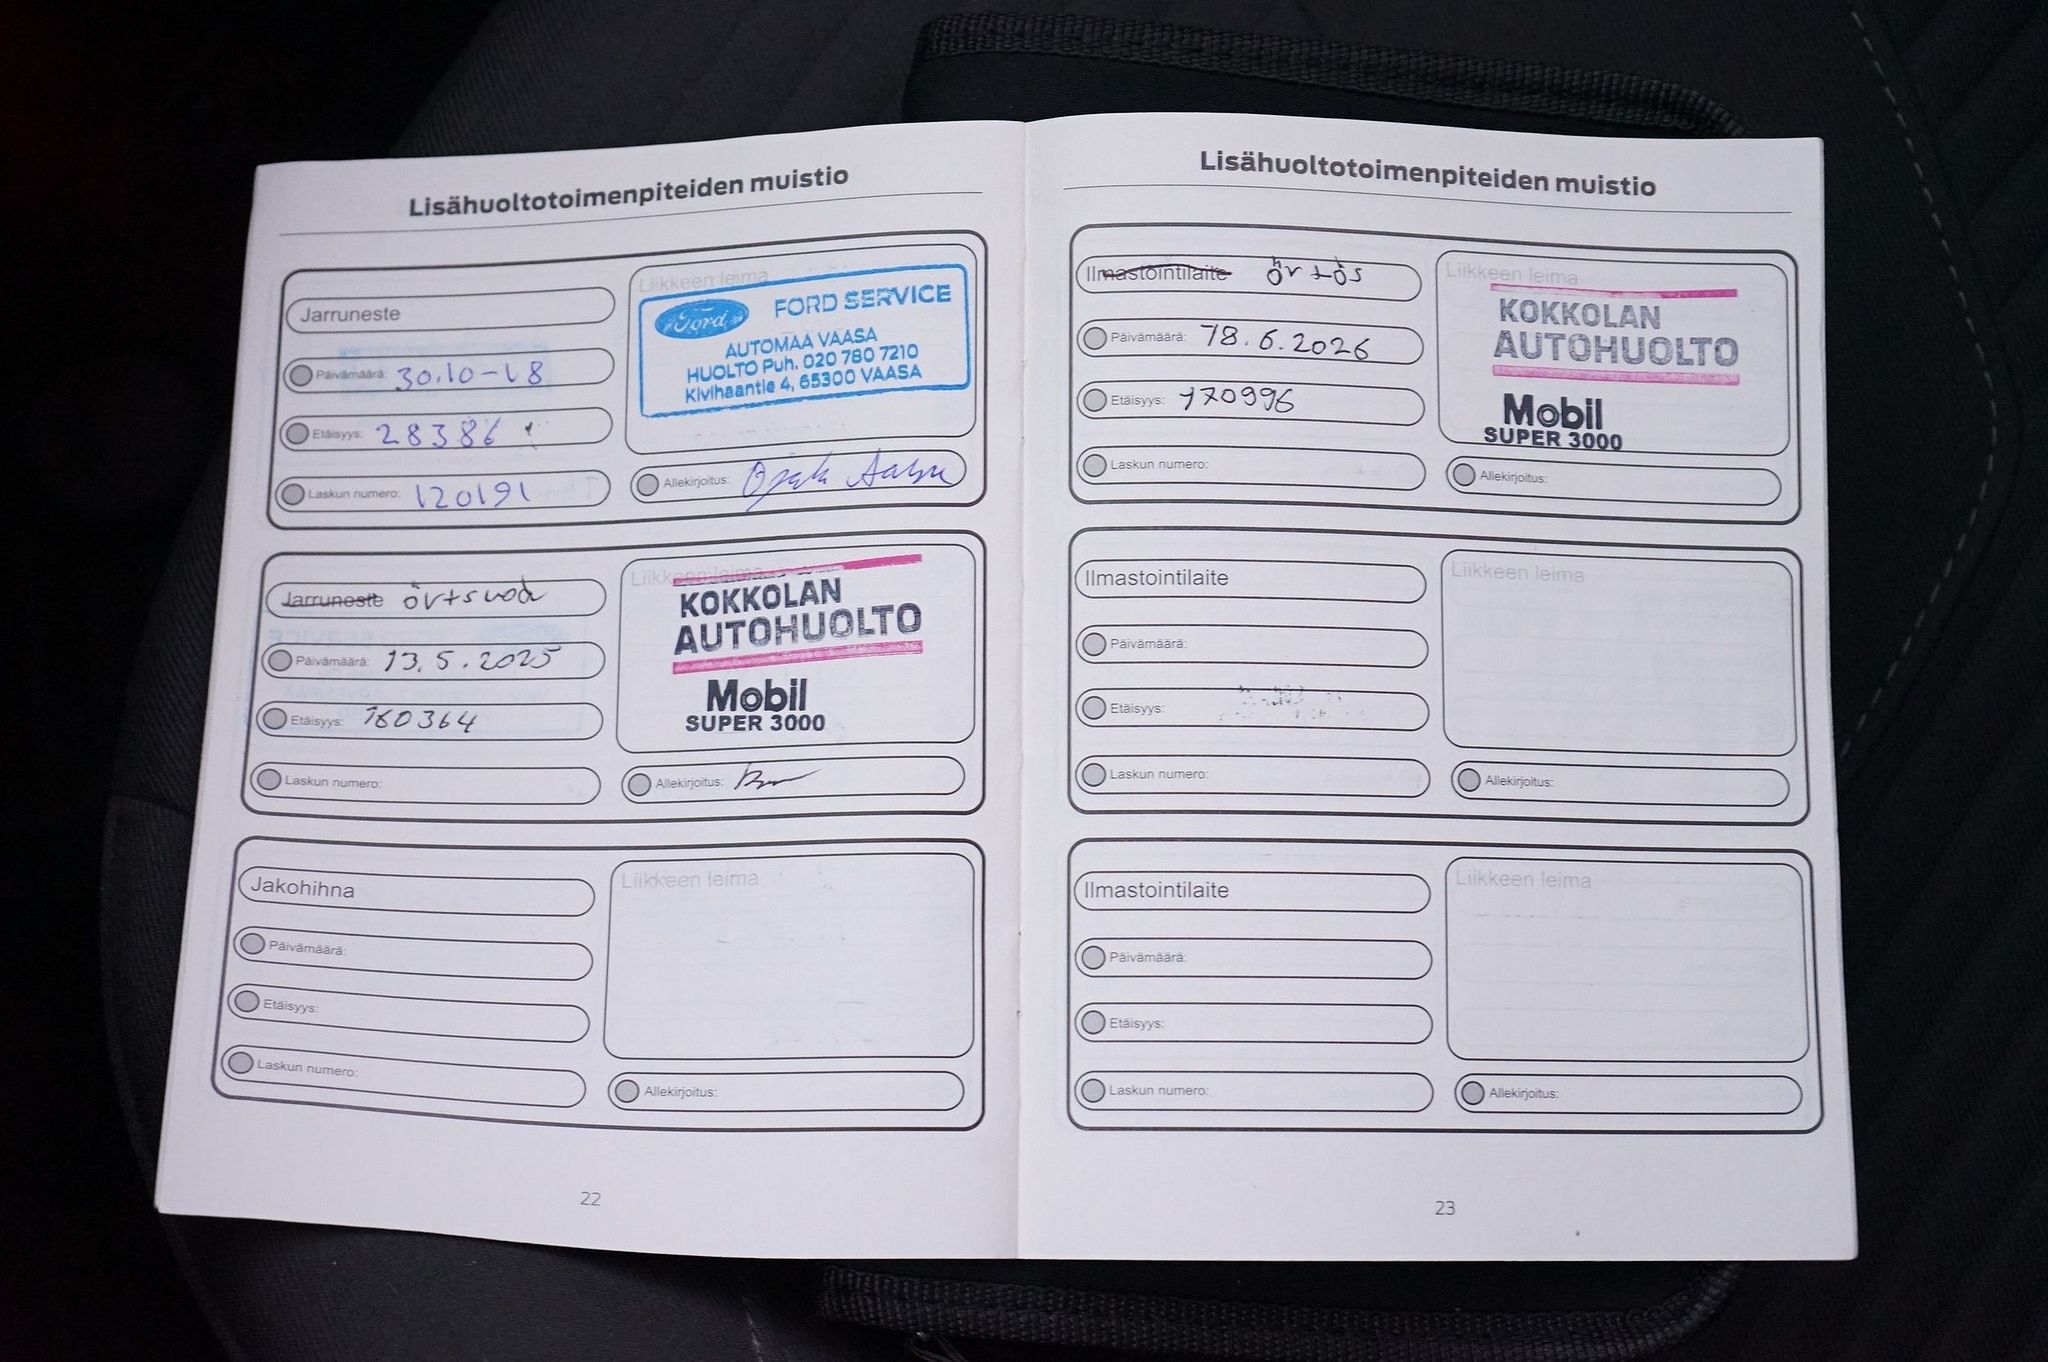 Lisähuoltotoimenpiteiden muistio
Jarruneste
Päivämäärä: 30.10-18
Etäisyys: 28386
Laskun numero: 120191
Liikkeen leima
Ford FORD SERVICE
AUTOMAA VAASA
HUOLTO Puh. 020 780 7210
Kivihaantie 4, 65300 VAASA
Allekirjoitus:
Jarruneste
Päivämäärä: 13.5.2025
Etäisyys: 160364
Laskun numero:
Liikkeen leima
KOKKOLAN
AUTOHUOLTO
Mobil
SUPER 3000
Allekirjoitus:
Jakohihna
Päivämäärä:
Etäisyys:
Laskun numero:
Liikkeen leima
Allekirjoitus:
22
Lisähuoltotoimenpiteiden muistio
Ilmastointilaite
Päivämäärä: 18.6.2026
Etäisyys: 170996
Laskun numero:
Liikkeen leima
KOKKOLAN
AUTOHUOLTO
Mobil
SUPER 3000
Allekirjoitus:
Ilmastointilaite
Päivämäärä:
Etäisyys:
Laskun numero:
Liikkeen leima
Allekirjoitus:
Ilmastointilaite
Päivämäärä:
Etäisyys:
Laskun numero:
Liikkeen leima
Allekirjoitus:
23